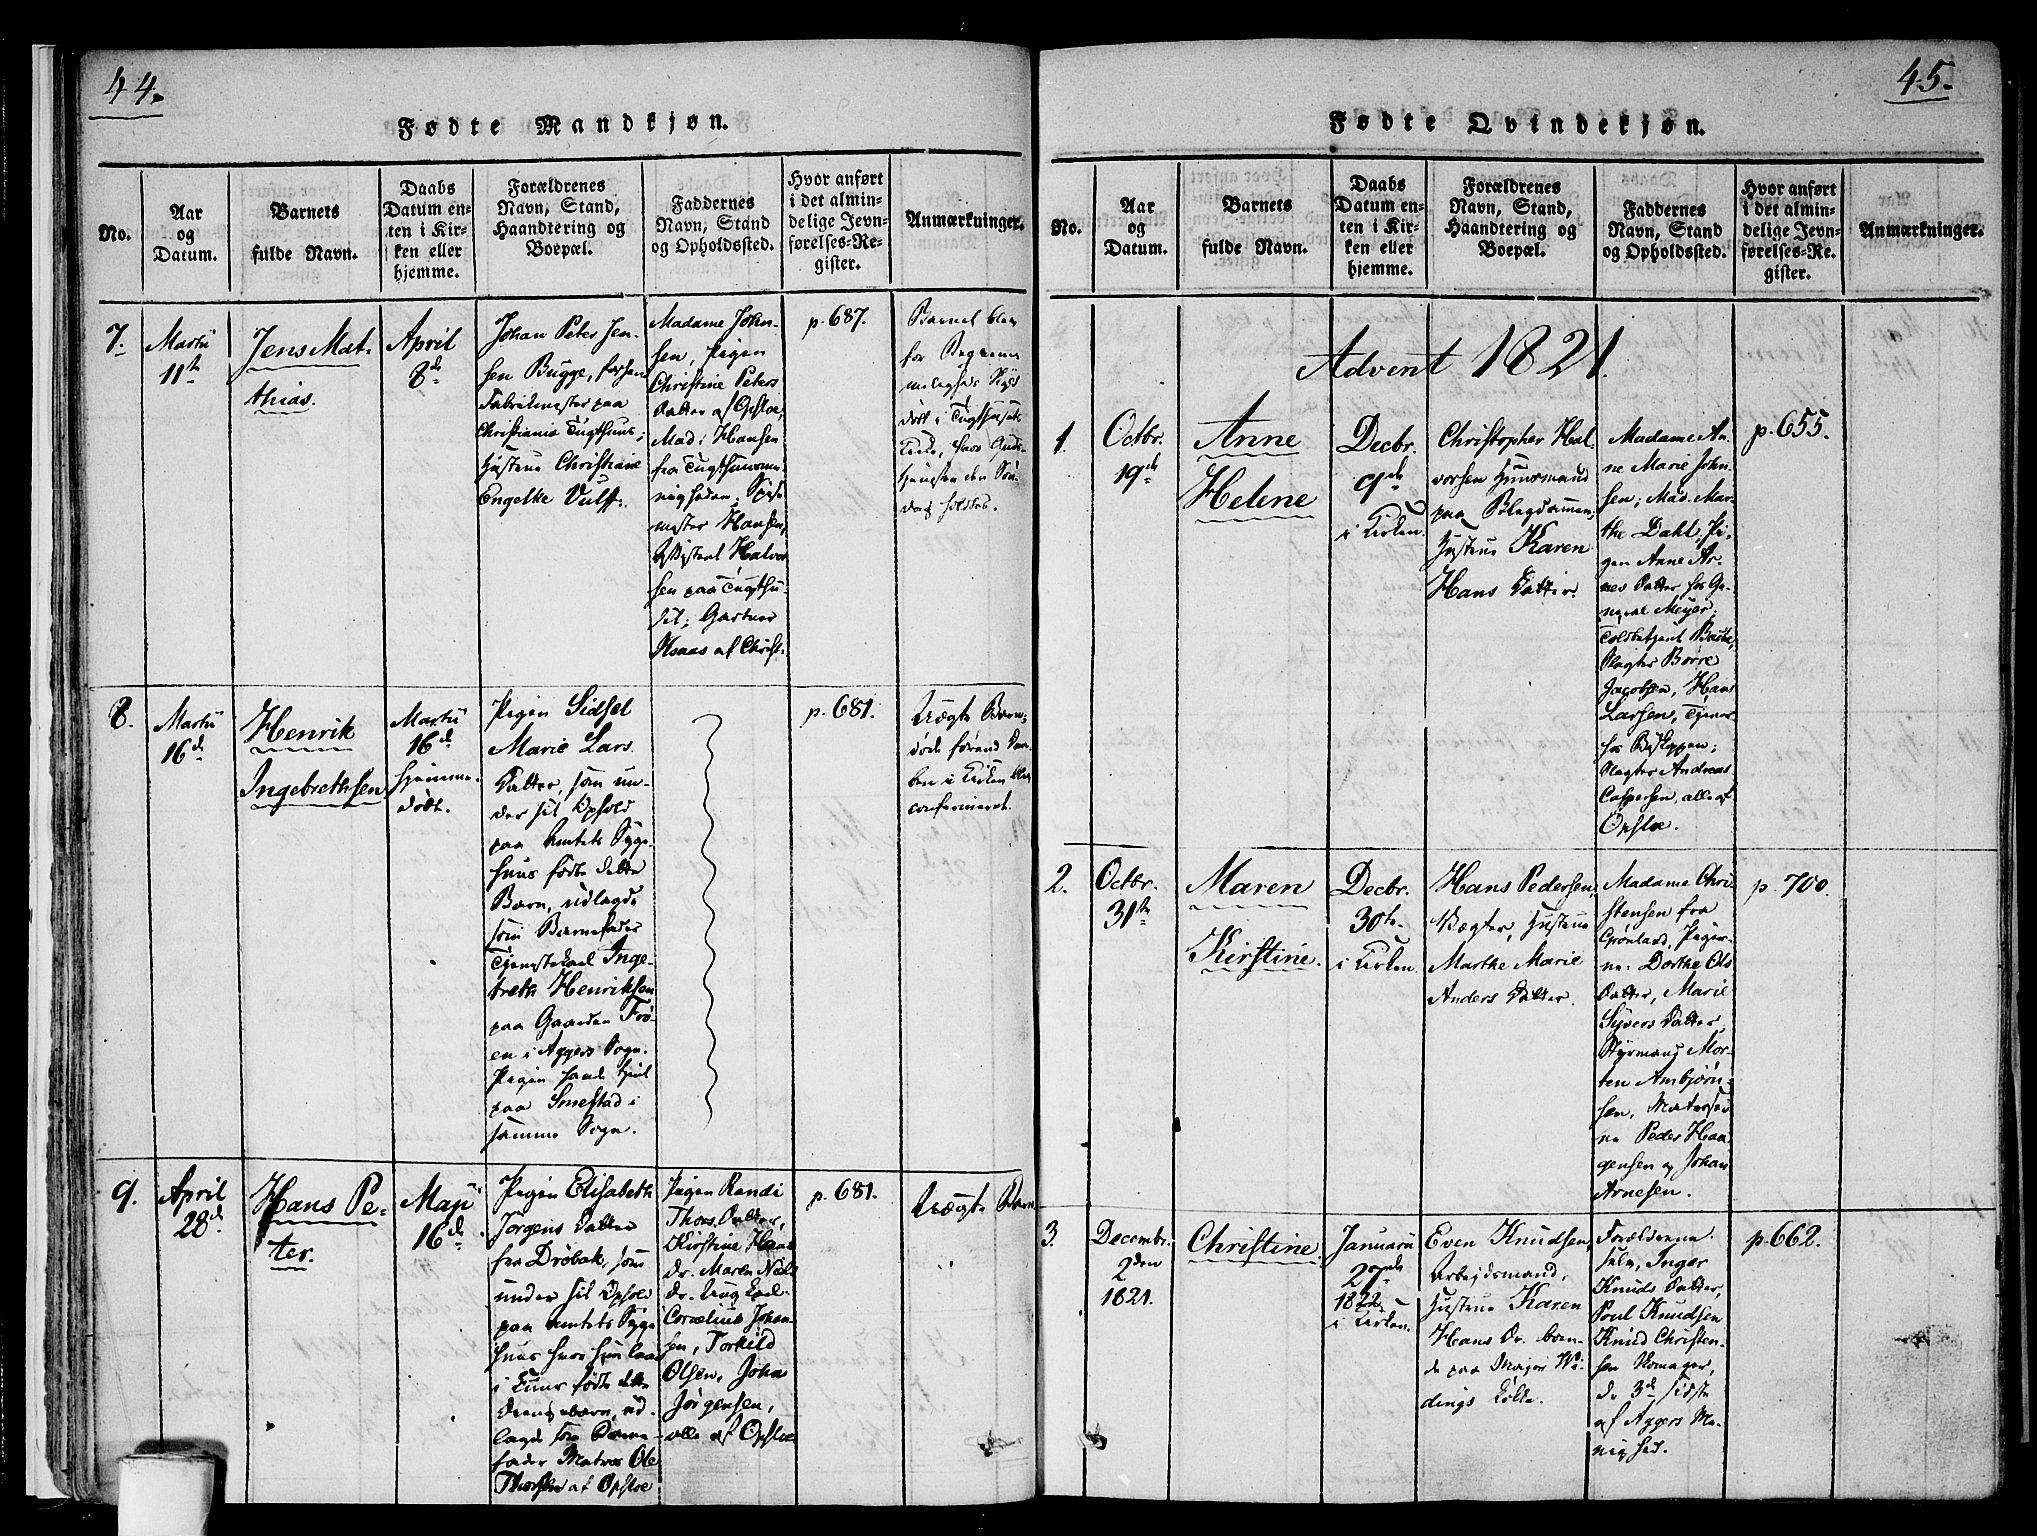 44.
Fødte Mandkjøn.
No.
Aar
og
Datum.
Barnets
fulde Navn.
Daabs
Datum en-
ten i Kir-
ken eller
hjemme.
Forældrenes
Navn, Stand,
Haandtering og
Boepæl.
Faddernes
Navn, Stand
og Opholdssted.
Hvor anført
i det almin-
delige Jevn-
førelses-Re-
gister.
Anmærkninger.
7.
Martii
11te
Jens Mat-
thias.
April
8de
Johan Peter Jen-
sen Bugge, forhen
Fabrikmester paa
Christiania Tugthuus;
Hustrue Christiane
Engelke Vulff.
Madame John-
sen, Pigen
Christine Peters
Datter af Opsloe,
Mad: Hansen
fra Tugthuusme-
nigheden; Spise
mester Hansen,
Assistent Halvor
sen paa Tugthu-
set; Gartner
Isaas af Christ:
p. 687.
Barnet blev
for
døbt i Tugthusets
Kirke, hvor Guds-
tjenesten den Søn-
dag holdtes.
8.
Martii
16de
Henrik
Ingebrethsen
Martii
16de
hjemme-
døbt.
Pigen Sidsel
Marie Lars
Datter, som un-
der sit Ophold
paa Amtets Syge
huus fødte dette
Barn, udlagde
som Barnefader
Tjenestekarl Inge-
breth Henriksen
paa Gaarden Frö-
en i Aggers Sogn.
Pigen havde tjent
paa Smestad i
samme Sogn.
p. 681.
Uægte Barn;
døde førend Daa-
ben i Kirken blev
confirmeret.
9.
April
28de
Hans Pe-
ter.
Maji
16de
Pigen Elisabeth
Jørgens Datter
fra Drøbak, som
under sit Ophold
paa Amtets Syge
huus hvor hun laae
i Kuur fødte dette
Drengebarn, ud-
lagde som Barne-
fader Matros Ole
Thorsen af Opsloe
Pigen Randi
Thors Datter,
Kirstine Hans
dr. Maren Niels
dr. Ung Karl
Cornelius Johan-
sen, Torkild
Olsen, John
Jørgensen,
alle af Opsloe
p. 681.
Uægte Barn
45.
Fødte Qvindekjøn.
No.
Aar
og
Datum.
Barnets
fulde Navn.
Daabs
Datum en-
ten i Kir-
ken eller
hjemme.
Forældrenes
Navn, Stand,
Haandtering og
Boepæl.
Faddernes
Navn, Stand
og Opholdssted.
Hvor anført
i det almin-
delige Jevn-
førelses-Re-
gister.
Anmærkninger.
Advent 1821.
1.
Octbr.
19de
Anne
Helene
Decbr.
9de
i Kirken
Christopher Hal-
vorsen Huusmand
paa Blegdammen;
Hustrue Karen
Hans Datter.
Madame An-
ne Marie John-
sen; Mad. Mar-
the Dahl, Pi-
gen Anne Ar-
nes Datter hos Ge-
neral Meyer;
Toldbetjent
Slagter Børre
Jacobsen, Hans
Larsen, Tjener
hos Biskoppen;
Slagter Andreas
Caspersen, alle af
Opsloe.
p. 655.
2.
Octbr.
31te
Maren
Kirstine.
Decbr.
30te
i Kirken
Hans Pedersen,
Vægter, Hustrue
Marthe Marie
Anders Datter.
Madame Chri-
stensen fra
Grønland, Piger-
ne: Dorthe Ols
Datter, Marie
Syvers Datter,
Styrmand Mor-
ten Ambjørn-
sen, Matroser-
ne Peder Haa-
gensen og Johan
Arnesen.
p. 700.
3.
Decembr.
2den
1821.
Christine.
Januarii
27de
1822
i Kirken.
Even Knudsen,
Arbejdsmand,
Hustrue Karen
Hans Dr. boen-
de paa Major Wi-
dings Løkke.
Forældrene
selv, Inger
Knuds Datter,
Poul Knudsen
Knud Christen-
sen
de 3de sidste
af Aggers Me-
nighed.
p. 662.